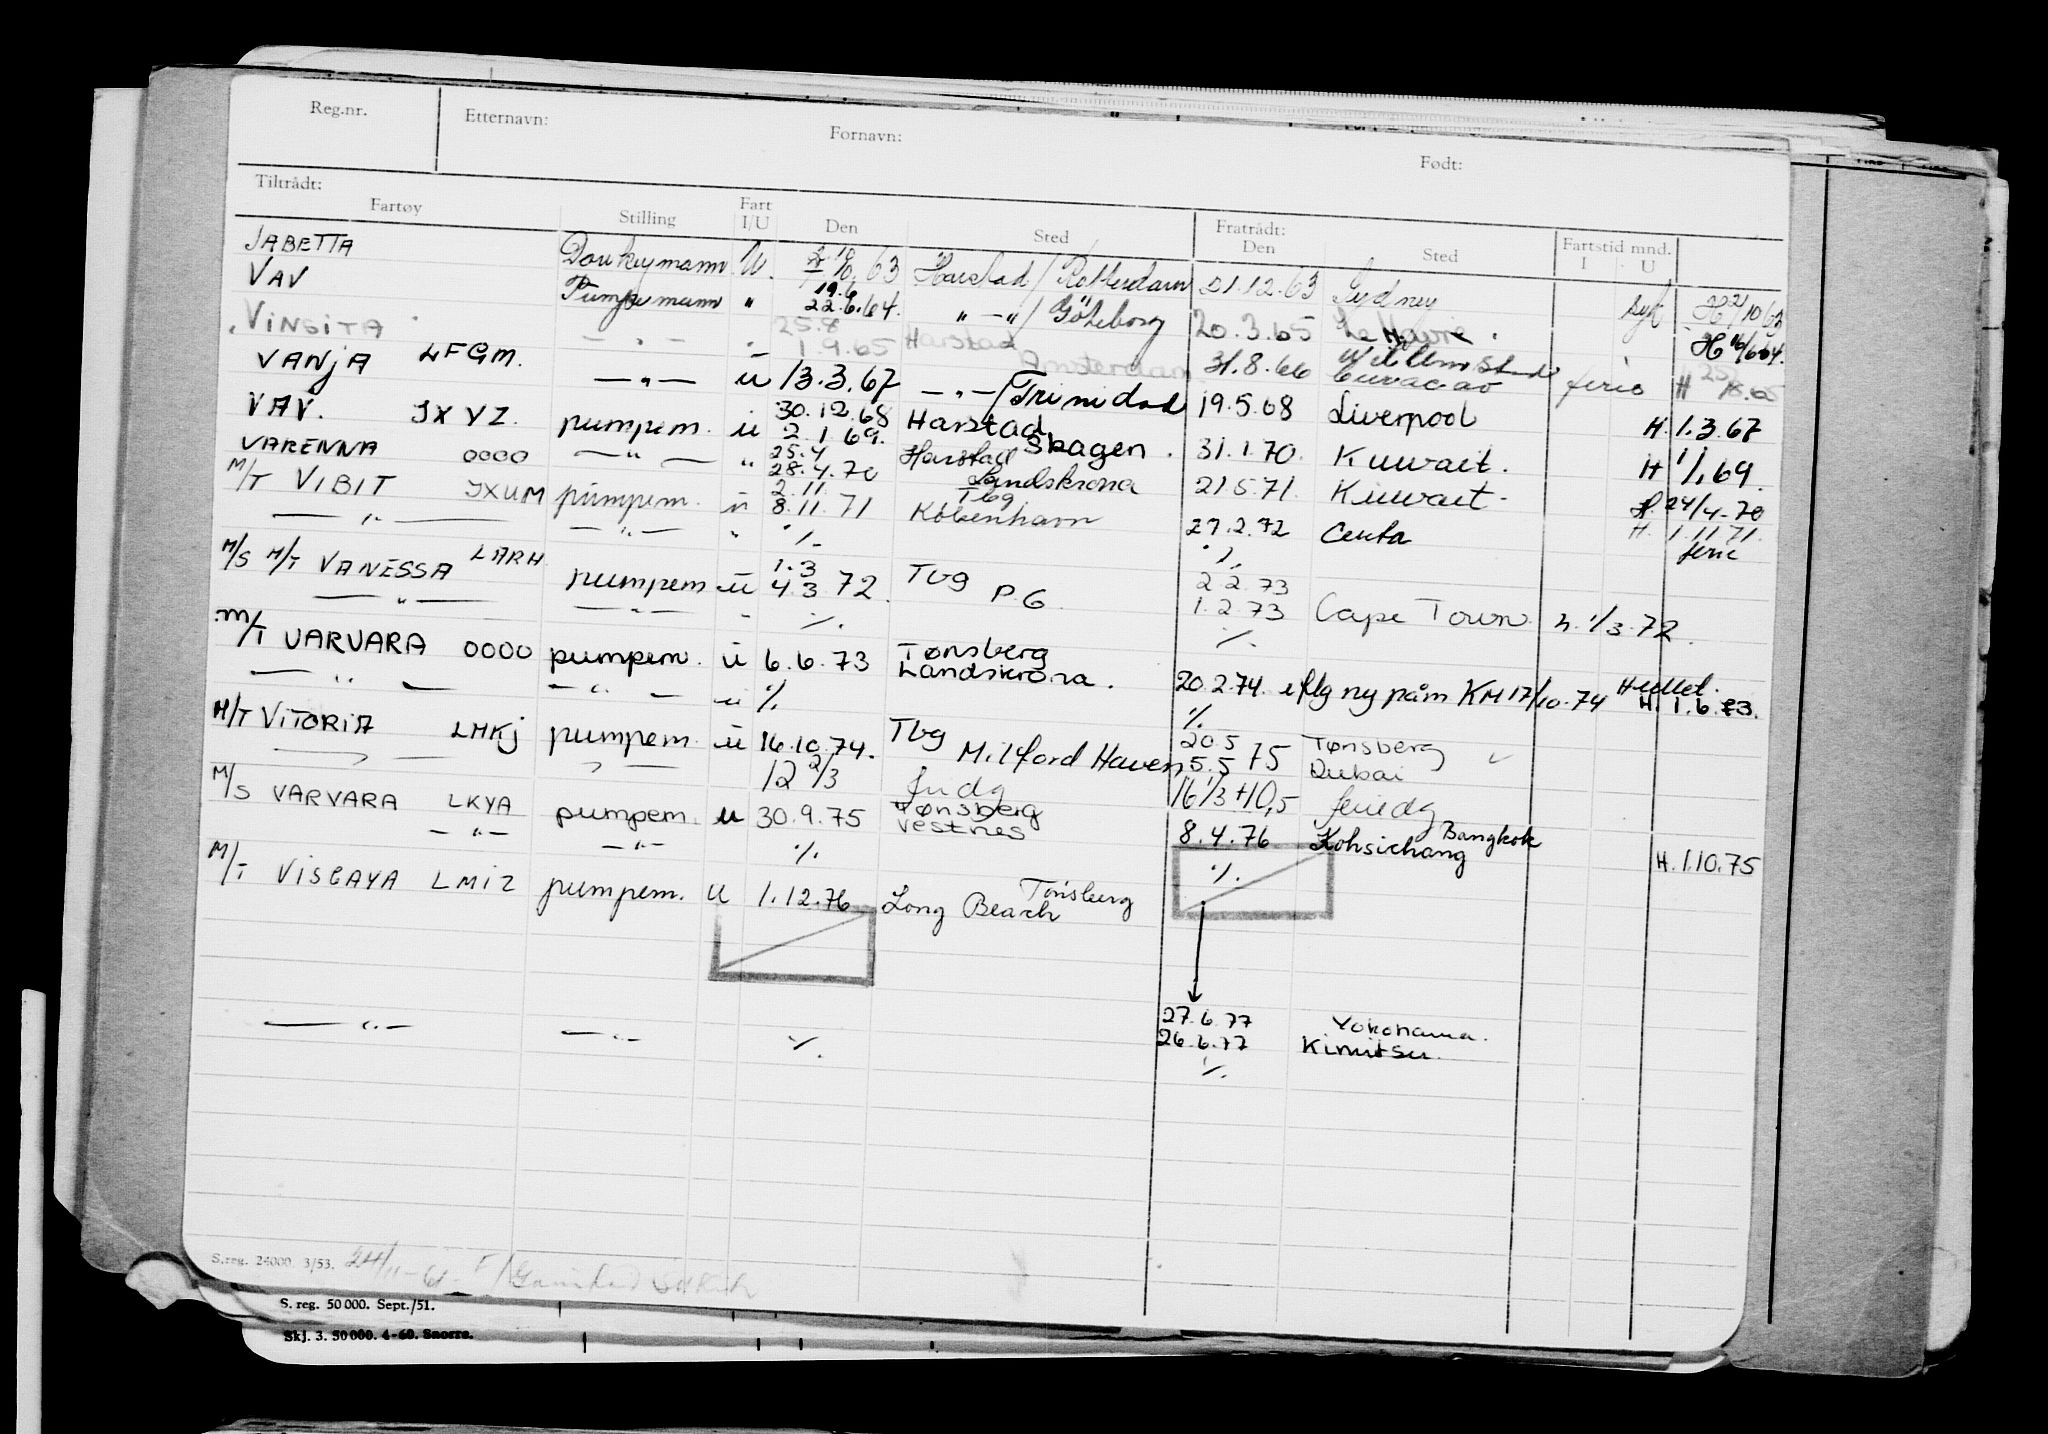 Reg.nr. Etternavn: Fornavn: Født:
Tiltrådt: Fratrådt:
Fartøy Stilling Fart I/U Den Sted Den Sted Fartstid mnd. I U
JABETTA Donkeymann U. 63 Harstad / Rotterdam 21.12.63 Sydney syk H 2/10 63
VAV Pumpemann " 19.6 22.6.64. " — " / Göteborg 20.3.65 Le Havre. H 16/6 64.
VINGITA — " — " 25.8 1.9.65 Harstad Amsterdam 31.8.66 Willemstad Curacao ferie H 25/8.65
VANJA LFGM. — " — u 13.3.67 — " — / Trinidad 19.5.68 Liverpool H. 1.3.67
VAV. JXYZ. pumpem. u 30.12.68 2.1.69. Harstad Skagen. 31.1.70. Kuwait. H 1/1.69.
VARENNA OOOO — " — " 25.4 28.4.70 Harstad Landskrona 21.5.71. Kuwait. H. 24/4-70
M/T VIBIT JXUM pumpem. u 2.11. 8.11.71 Tbg København 27.2.72 Ceuta H. 1.11.71.
— " — — " — " % % ferie
M/S M/T VANESSA LARH pumpem u 1.3 4.3.72. Tbg P.G. 2.2.73 1.2.73 Cape Town h. 1/3.72.
— " — — " — " %. %
M/T VARVARA OOOO pumpem. u 6.6.73 Tønsberg Landskrona. 20.2.74. iflg ny påm KM 17/10.74 H. 1.6.73.
— " — — " — u % %
M/T VITORIA LMKJ pumpem. u 16.10.74. Tbg Milford Haven 20.5 5.5 75 Tønsberg Dubai
12 2/3 16 1/3 + 10,5 feriedg
M/S VARVARA LKYA pumpem. u 30.9.75 Tønsberg Vestnes 8.4.76 Bangkok Kohsichang H. 1.10.75
— " — — " — % %.
M/T VISCAYA LMIZ pumpem. U 1.12.76 Tønsberg Long Beach
27.6.77 Yokohama.
— " — — " — %. 26.6.77 Kimitsu.
%.
S.reg. 24000. 3/53.
S. reg. 50 000. Sept./51.
Skj. 3. 50 000. 4-60. Snorre.